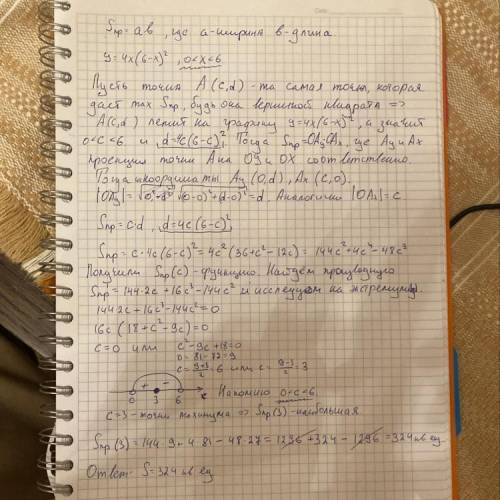 Sпр = ab, где a-ширина b-длина.
y=4x(6-x)², 0<x<6
Пусть точка A(c,d) - та самая точка, которая
даст max Sпр, будь она вершиной квадрата =>
A(c,d) лежит на графику y=4x(6-x)², а значит
0<c<6 и d=4c(6-c)². Тогда Sпр=OAy·OAx, где Ay и Ax
проекция точки A на OY и OX соответственно.
Тогда их координаты Ay(0,d), Ax(c,0).
√(0-0)²+(d-0)² = d. Аналогично |OAx|=c.
Sпр=c·d, d=4c(6-c)²
Sпр=c·4c(6-c)²=4c²(36+c²-12c)=144c²+4c⁴-48c³
Получили Sпр(c)-функцию. Найдём производную
Sпр=144·2c+16c³-144c² и исследуем на экстремумы.
144·2c+16c³-144c²=0
16c(18+c²-9c)=0
c=0 или c²-9c+18=0
D=81-72=9
c=(9+3)/2=6 или c=(9-3)/2=3
+ -
0 3 6 Напомню 0<c<6
c=3-точка максимума => Sпр(3)-наибольшая
Sпр(3)=144·9+4·81-48·27=1296+324-1296=324 кв ед.
Ответ: S=324 кв ед